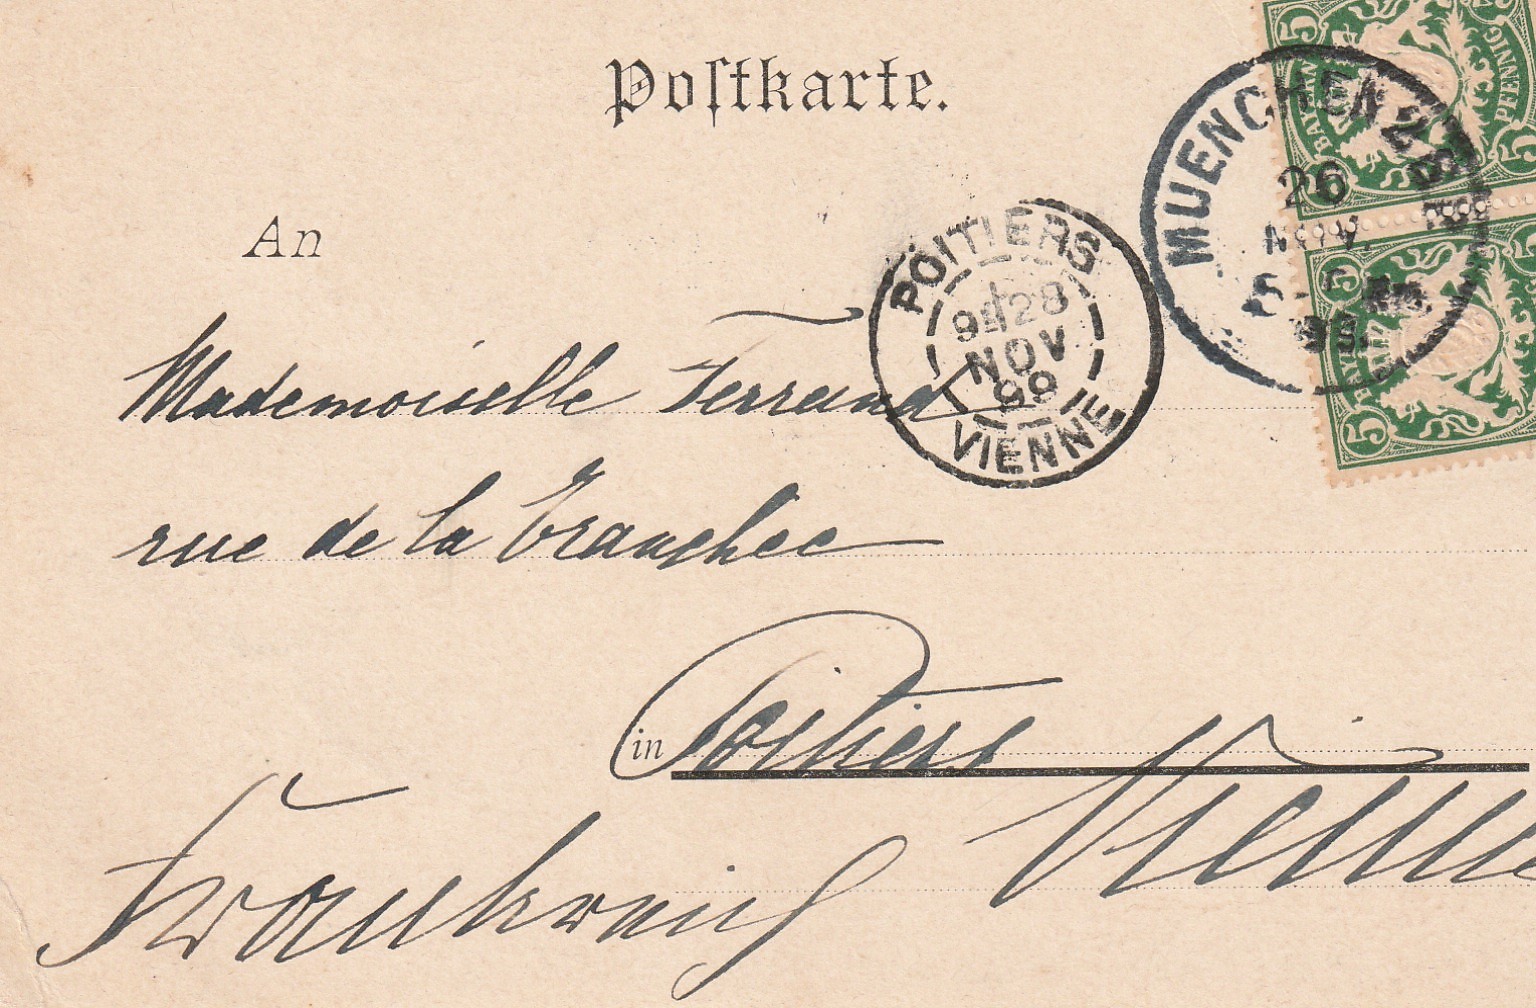 Postkarte.
5 BAYERN 5 PFENNIG
MUENCHEN 2 B.P.
26
NOV.
An
POITIERS
28
NOV
99
VIENNE
5 5
Mademoiselle Ferrand
rue de la Tranchée
in Poitiers Vienne
Frankreich